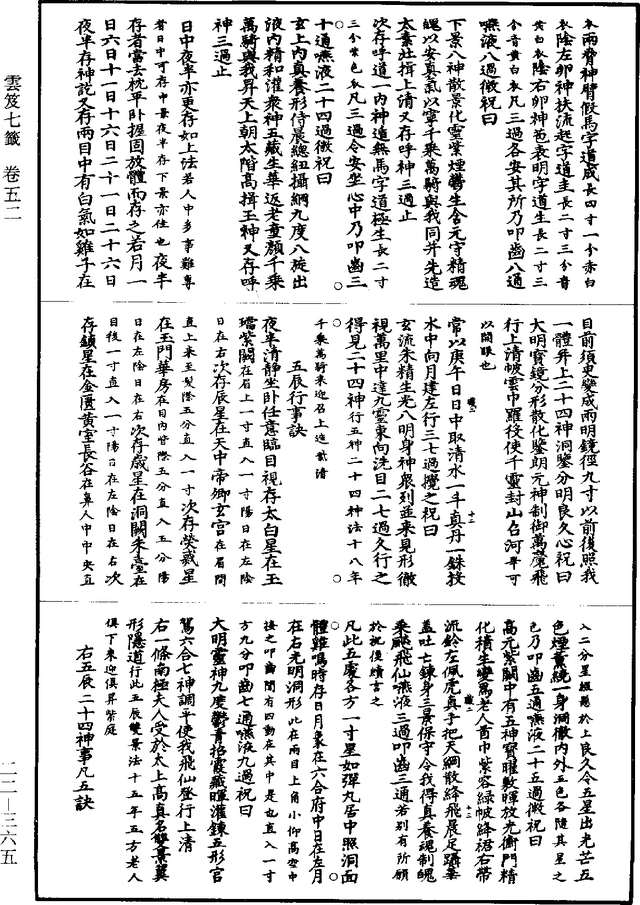 水兩腎神臂假馬字道成長四寸一分赤白
衣陰左卯神扶流起字道圭長二寸三分青
黃白衣陰右卯神苞表明字道生長二寸三
分青黃白衣凡三過各安其所乃叩齒八通
嚥液八過微祝曰
下景八神散景化靈紫煙鬱生含元守精魂
魄以安真氣以寧千乘萬騎與我同并先造
太素北揖上清又存呼神三過止
次存呼道一內神遺無馬字道極生長二寸
三分紫色衣凡三過令安坐心中乃叩齒三
十通嚥液二十四過微祝曰
玄上內真養形侍晨總紐攝綱九度八旋出
液內精和灌衆神五藏生華返老童顏千乘
萬騎與我昇天上朝太階高揖玉神又存呼
神三過止
日中夜半亦更存如上法若人中多事難專
者日中可存中景夜半存下景亦佳也夜半
存者當去枕平臥握固放體而存之若月一
日六日十一日十六日二十一日二十六日
夜半存神說又存兩目中有白氣如雞子在
目前須臾變成兩明鏡徑九寸以前後照我
一體昇上二十四神洞鑒分明良久心祝曰
大明寶鏡分形散化鑒朗元神制御萬魔飛
行上清帔雲巾羅役使千靈封山召河畢可
以開眼也
常以庚午日日中取清水一斗真丹一銖投
水中向月建左行三七過攪之祝曰
玄流朱精生光八明身神衆列並來見形徹
視萬里中達九靈東向洗目二七過久行之
得見二十四神行五神二十四神法十八年
千乘萬騎來迎召上造紫清
五辰行事訣
夜半清靜坐臥任意臨目視存太白星在玉
璫紫闕在眉上一寸直入一寸陽日在左陰
日在右次存辰星在天中帝卿玄宮在眉間
直上來至髮際五分直入一寸次存熒惑星
在玉門華房在目內眥際五分直入五分陽
日在左陰日在右次存歲星在洞闕朱臺在
目後一寸直入一寸陽日在左陰日在右次
存鎮星在金匱黃室長谷在鼻人中中央直
入二分星綴懸於上良久令五星出光芒五
色煙薰繞一身洞徹內外五色各隨其星之
色乃叩齒五通嚥液二十五過微祝曰
高元紫闕中有五神寶曜敷暉放光衝門精
化積生變爲老人首巾紫容綠帔絳裙右帶
流鈴左佩虎真手把天綱散絳飛晨足躡華
蓋吐亡鍊身三景保守令我得真養魂制魄
乘飈飛仙嚥液三過叩齒三通若別有所願
於祝後續言之
凡此五處各方一寸星如彈丸居中照洞面
體雞鳴時存日月象在六合府中日在左月
在右光明洞形此在兩目上角小仰高空中
按之叩齒聞有四動在其中是也直入一寸
方九分叩齒七通嚥液九過祝曰
大明靈神九度鬱青招霞藏暉灌鍊五形官
駕六合七神調平使我飛仙登行上清
右一條南極夫人受於太上高真名雙景翼
形隱道行此五辰雙景法十五年五方老人
俱下來迎俱昇紫庭
右五辰二十四神事凡五訣
雲笈七籤　卷五二
二二—三六五